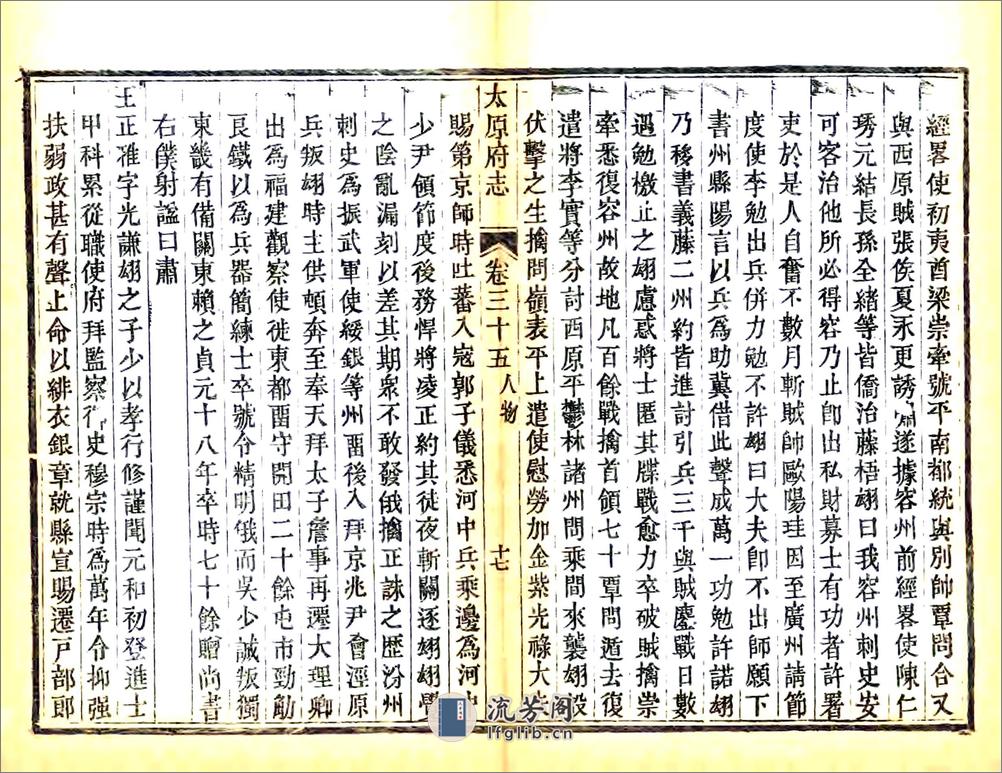 經畧使初夷酋梁崇牽號平南都統與別帥覃問合又
與西原賊張侯夏永更誘遂據容州前經畧使陳仁
琇元結長孫全緒等皆僑治藤梧翃曰我容州刺史安
可容治他所必得容乃止卽出私財募士有功者許署
吏於是人自奮不數月斬賊帥歐陽珪因至廣州請節
度使李勉出兵併力勉不許翃曰大夫卽不出師願下
書州縣陽言以兵爲助冀借此聲成萬一功勉許諾翃
乃移書義藤二州約皆進討引兵三千與賊鏖戰日數
遇勉檄止之翃慮惑將士匿其牒戰愈力卒破賊擒崇
牽悉復容州故地凡百餘戰擒首領七十覃問遁去復
遣將李實等分討西原平鬱林諸州問乘間來襲翃設
伏擊之生擒問嶺表平上遣使慰勞加金紫光祿大夫
太原府志 卷三十五 人物 十七
賜第京師時吐蕃入寇郭子儀悉河中兵乘邊爲河中
少尹領節度後務悍將凌正約其徒夜斬關逐翃翃覺
之陰亂漏刻以差其期衆不敢發俄擒正誅之歷汾州
刺史爲振武軍使綏銀等州畱後入拜京兆尹會涇原
兵叛翃時主供頓奔至奉天拜太子詹事再遷大理卿
出爲福建觀察使徙東都畱守開田二十餘屯市勁觔
良鐵以爲兵器簡練士卒號令精明俄而吳少誠叛獨
東畿有備關東賴之貞元十八年卒時七十餘贈尚書
右僕射諡曰肅
王正雅字光謙翃之子少以孝行修謹聞元和初登進士
甲科累從職使府拜監察御史穆宗時爲萬年令抑强
扶弱政甚有聲止命以緋衣銀章就縣宣賜遷戸部郎
流芳阁
lfglib.cn